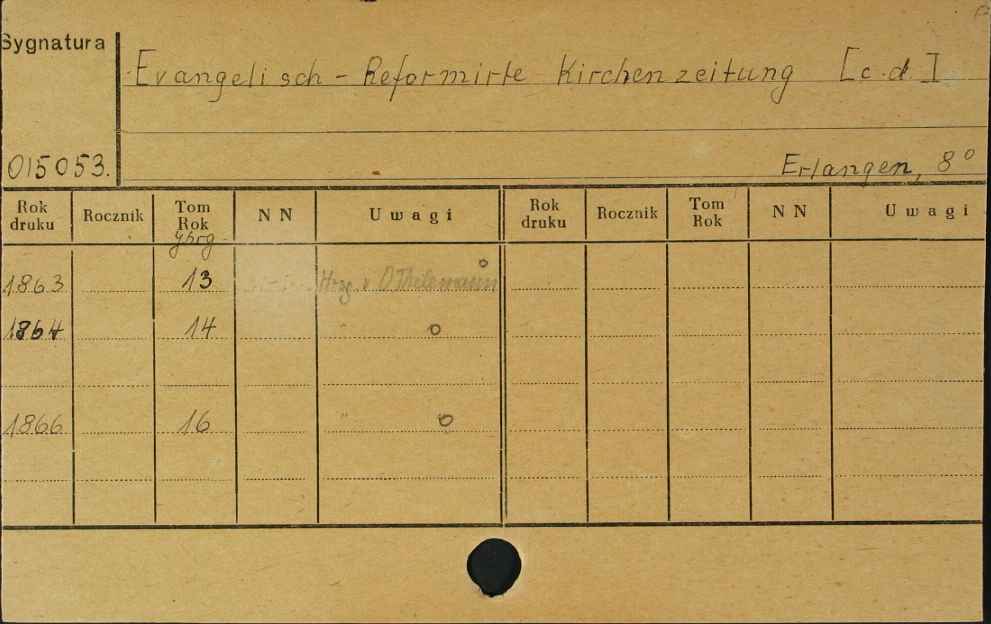 Sygnatura
Evangelisch - Reformirte Kirchenzeitung [c.d.]
015053.
Erlangen, 8°
Rok druku Rocznik Tom Rok NN Uwagi Rok druku Rocznik Tom Rok NN Uwagi
Jhrg
1863 13 Hrsg. v. O Thelemann o
1864 14 " o
1866 16 " o